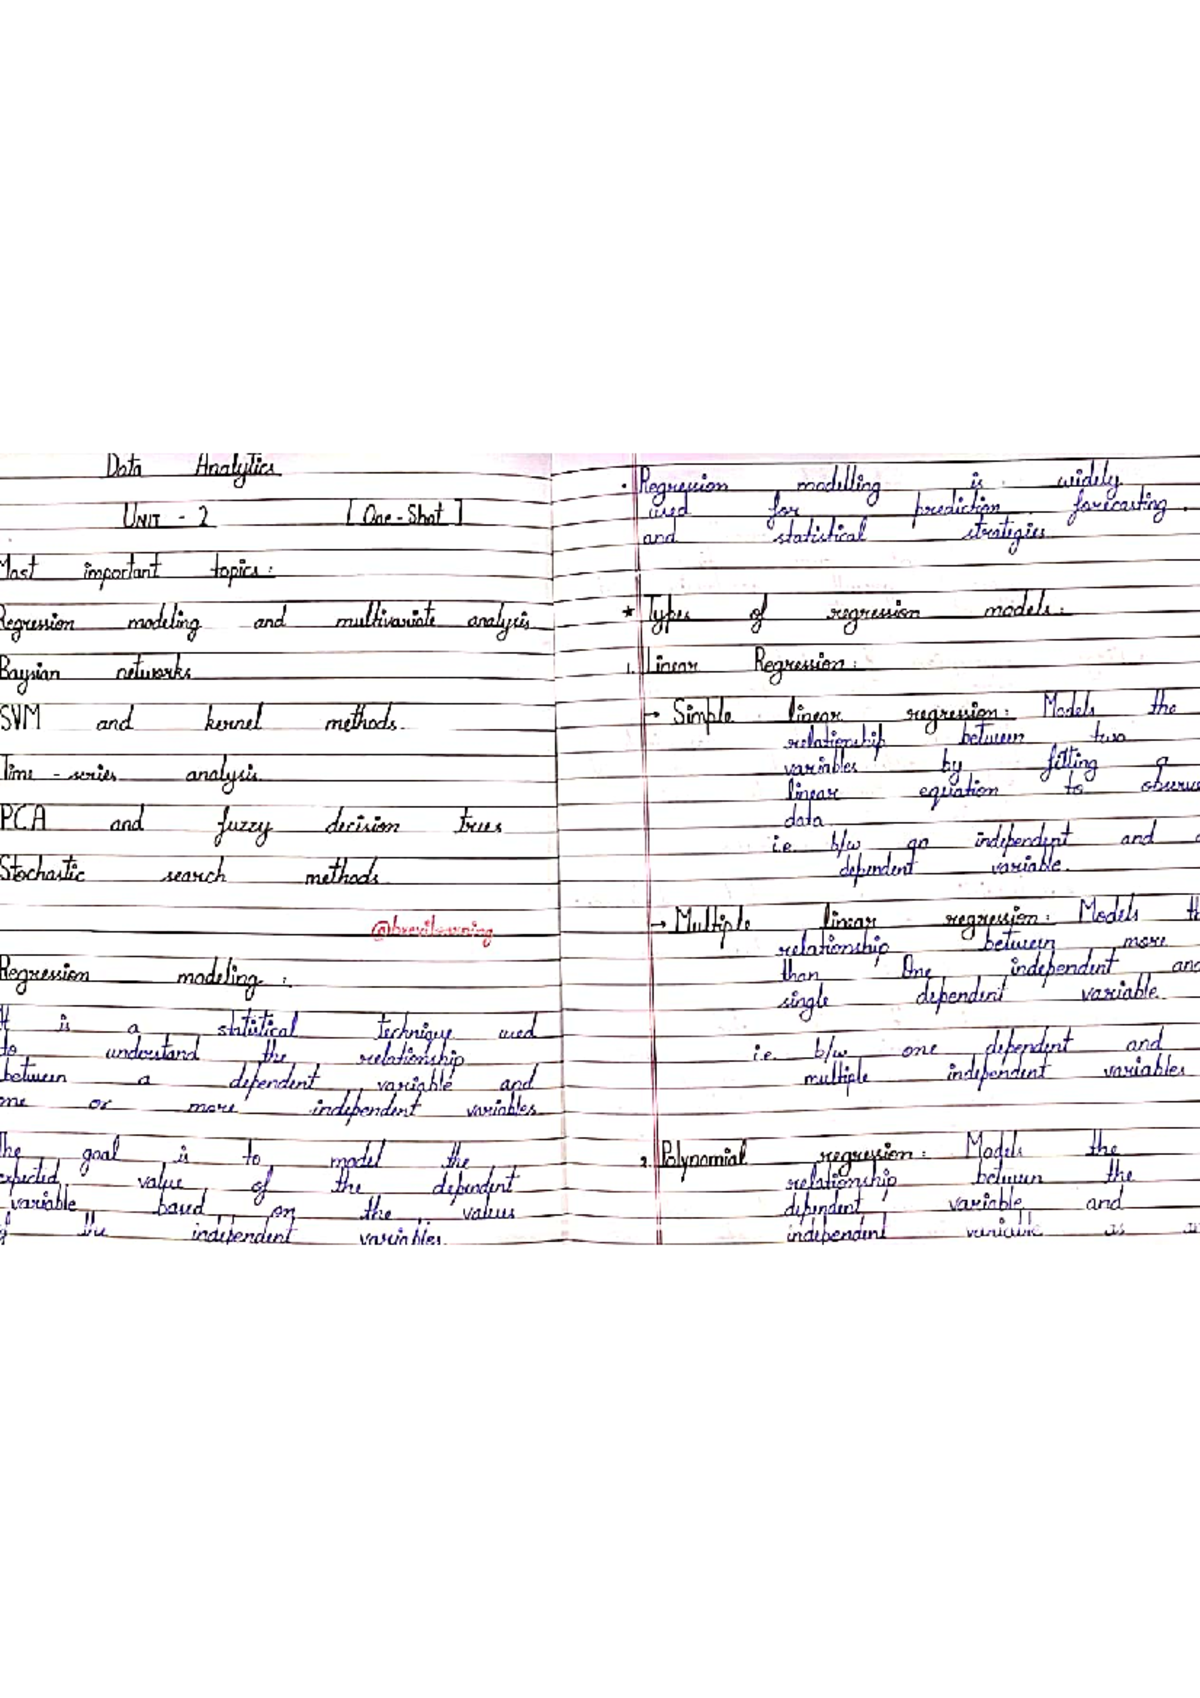 Data Analytics
UNIT - 2 [One-Shot]
Most important topics:
Regression modeling and multivariate analysis
Baysian networks
SVM and kernel methods.
Time - series analysis
PCA and fuzzy decision trees
Stochastic search methods
@brevilearning
Regression modeling :
It is a statistical technique used
to understand the relationship
between a dependent variable and
one or more independent variables
The goal is to model the
expected value of the dependent
variable based on the values
of the independent variables.
• Regression modelling is widely
used for prediction, forecasting,
and statistical strategies
* Types of regression models:
1. Linear Regression:
→ Simple linear regression: Models the
relationship between two
variables by fitting a
linear equation to
data
i.e. b/w an independent and
dependent variable.
→ Multiple linear regression: Models
relationship between more
than One independent and
single dependent variable.
i.e. b/w one dependent and
multiple independent variables
2. Polynomial regression: Models the
relationship between the
dependent variable and
independent variable is